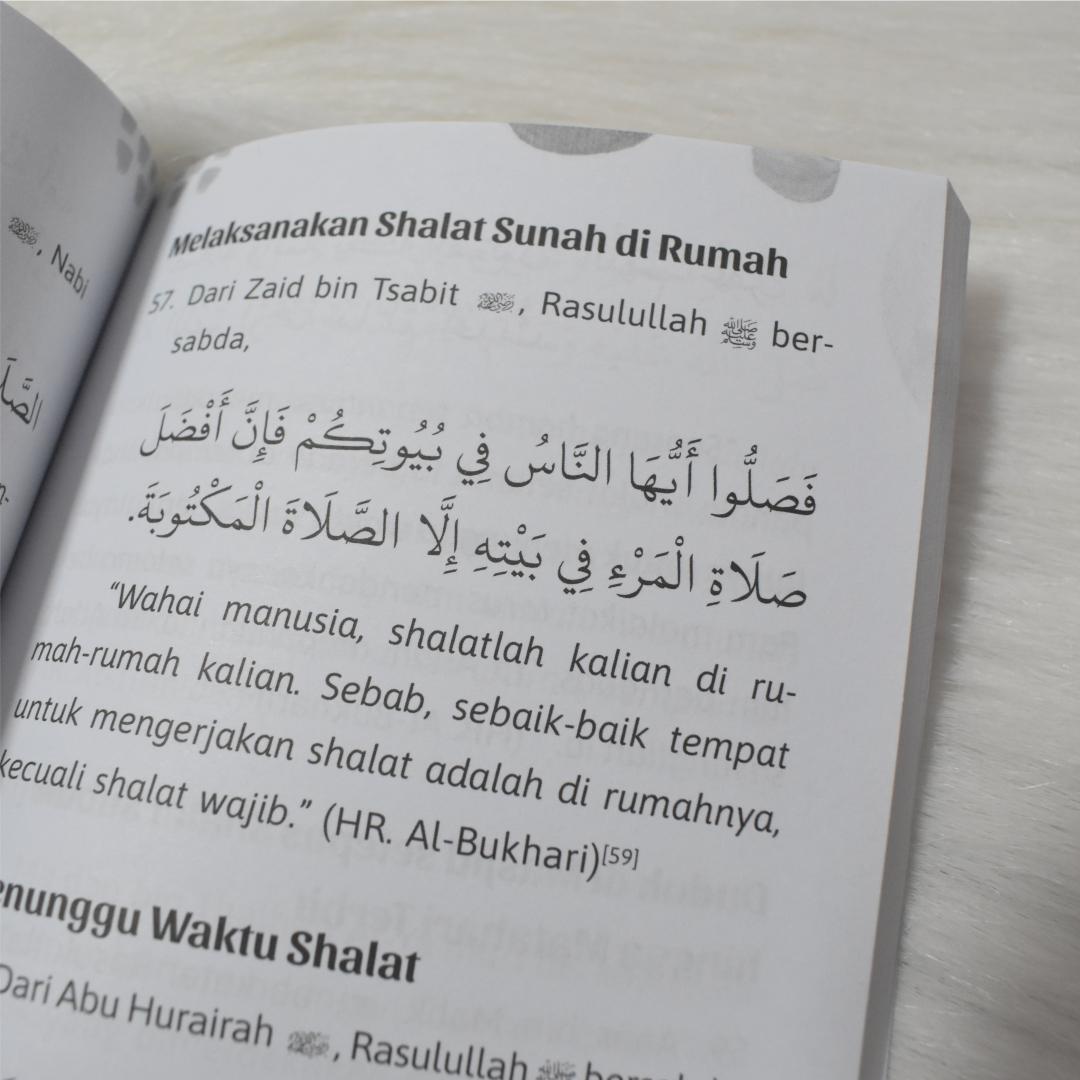 , Nabi
الصَّلَا
Melaksanakan Shalat Sunah di Rumah
57. Dari Zaid bin Tsabit رضي الله عنه, Rasulullah ﷺ ber-
sabda,
فَصَلُّوا أَيُّهَا النَّاسُ فِي بُيُوتِكُمْ فَإِنَّ أَفْضَلَ
صَلَاةِ الْمَرْءِ فِي بَيْتِهِ إِلَّا الصَّلَاةَ الْمَكْتُوبَةَ.
“Wahai manusia, shalatlah kalian di ru-
mah-rumah kalian. Sebab, sebaik-baik tempat
untuk mengerjakan shalat adalah di rumahnya,
kecuali shalat wajib.” (HR. Al-Bukhari)[59]
enunggu Waktu Shalat
Dari Abu Hurairah رضي الله عنه, Rasulullah ﷺ